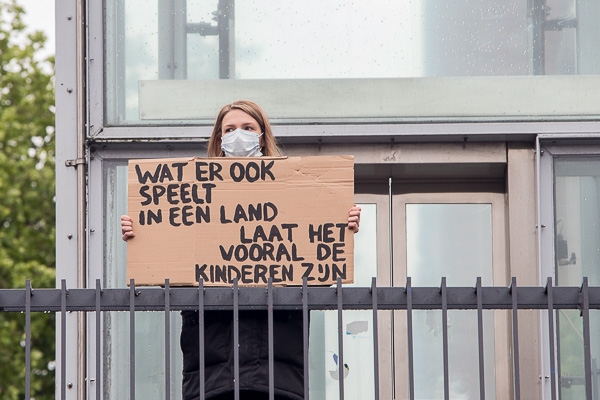 WAT ER OOK
SPEELT
IN EEN LAND
LAAT HET
VOORAL DE
KINDEREN ZIJN